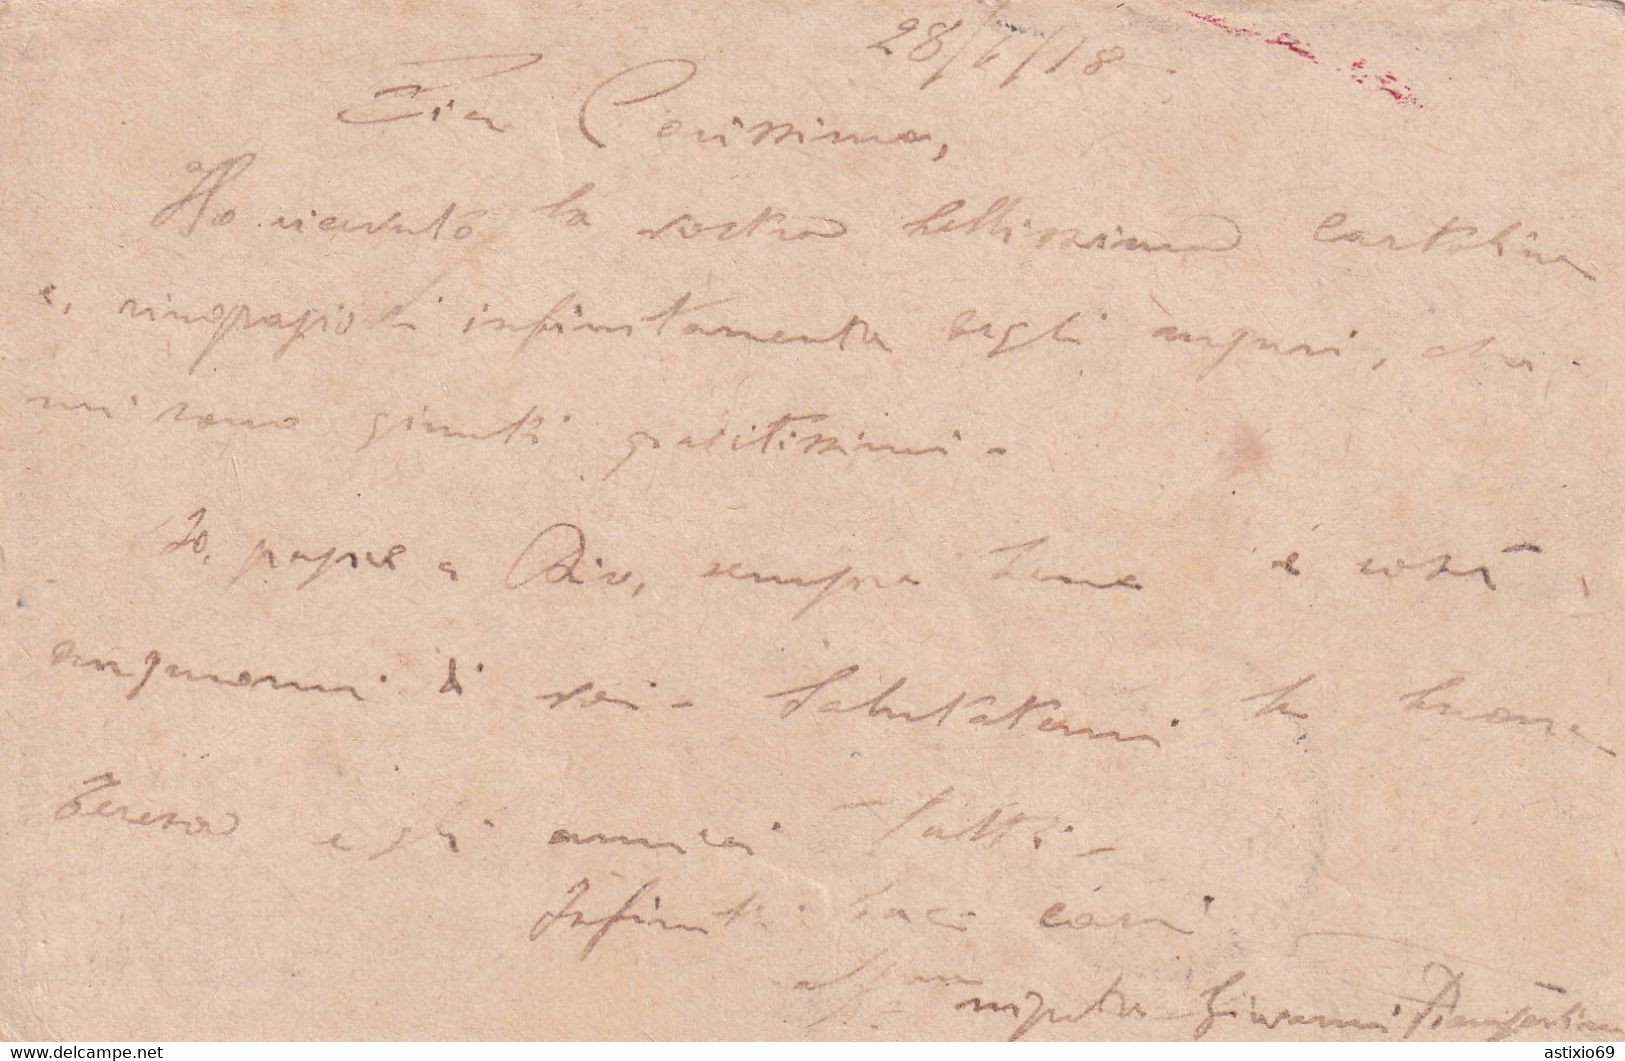 28/7/18.
Zia Carissima,
Ho ricevuto la vostra bellissima cartolina
e, ringraziovi infinitamente degli auguri, che
mi sono giunti graditissimi -
Io, grazie a Dio, sempre bene e così
auguromi di voi - Salutatemi la buona
Teresa e gli amici tutti -
Infiniti baci cari
nipote Giovanni
astixio69